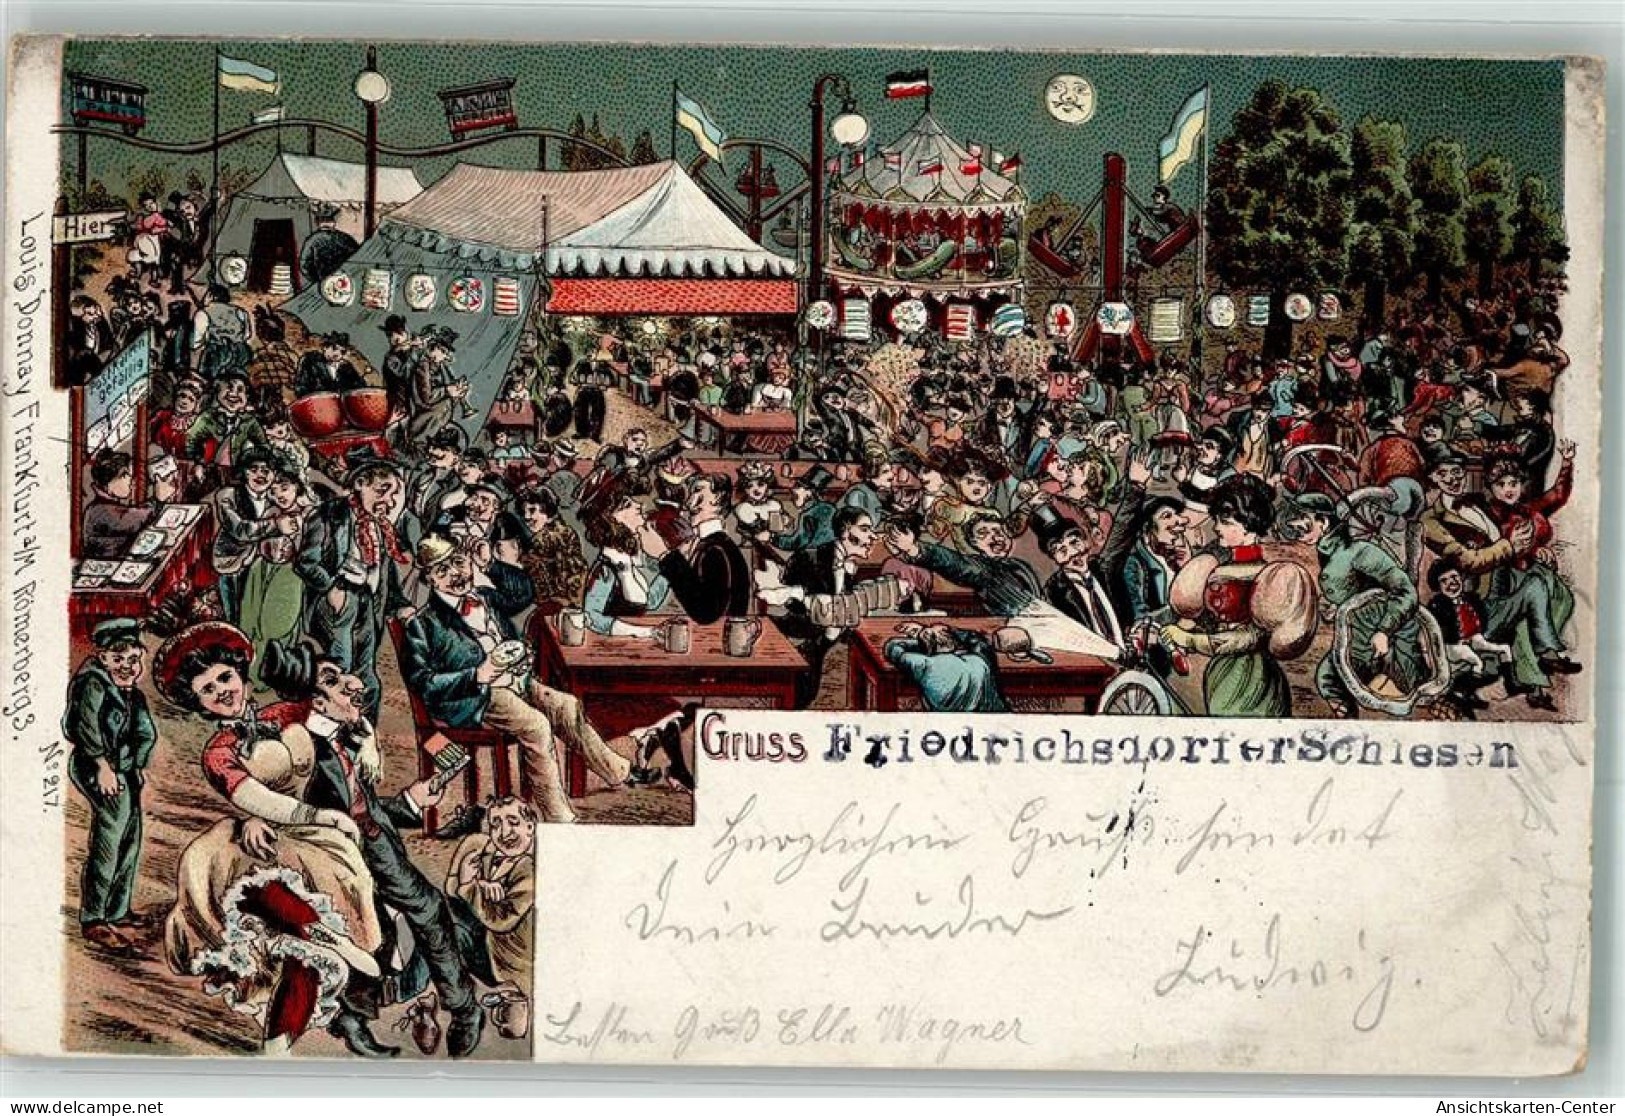 Hier
gefällig
Louis Donnay Frankfurt a/M Römerberg 3.
No 217.
Gruss FriedrichsdorferSchiesen
Herzlichen Gruß sendet
Dein Bruder
Ludwig.
Besten Gruß Ella Wagner
Ansichtskarten-Center